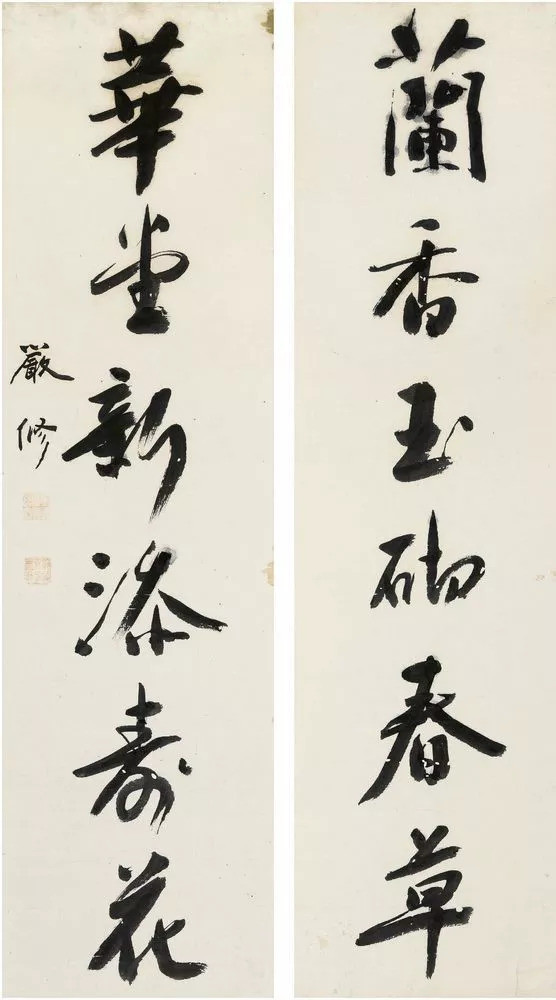 蘭香玉砌春草
華堂新添壽花
嚴修